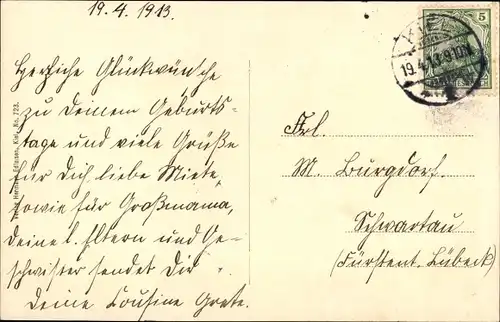 19. 4. 1913.
Herzliche Glückwünsche
zu Deinem Geburts-
tage und viele Grüße
für Dich liebe Miete,
sowie für Großmama,
Deine l. Eltern und Ge-
schwister sendet Dir
Deine Cousine Grete.
Frl.
M. Burgdorf.
Schwartau
(Fürstent. Lübeck)
KIEL
19.4.13.9-10N
5
Kiel, No. 723.